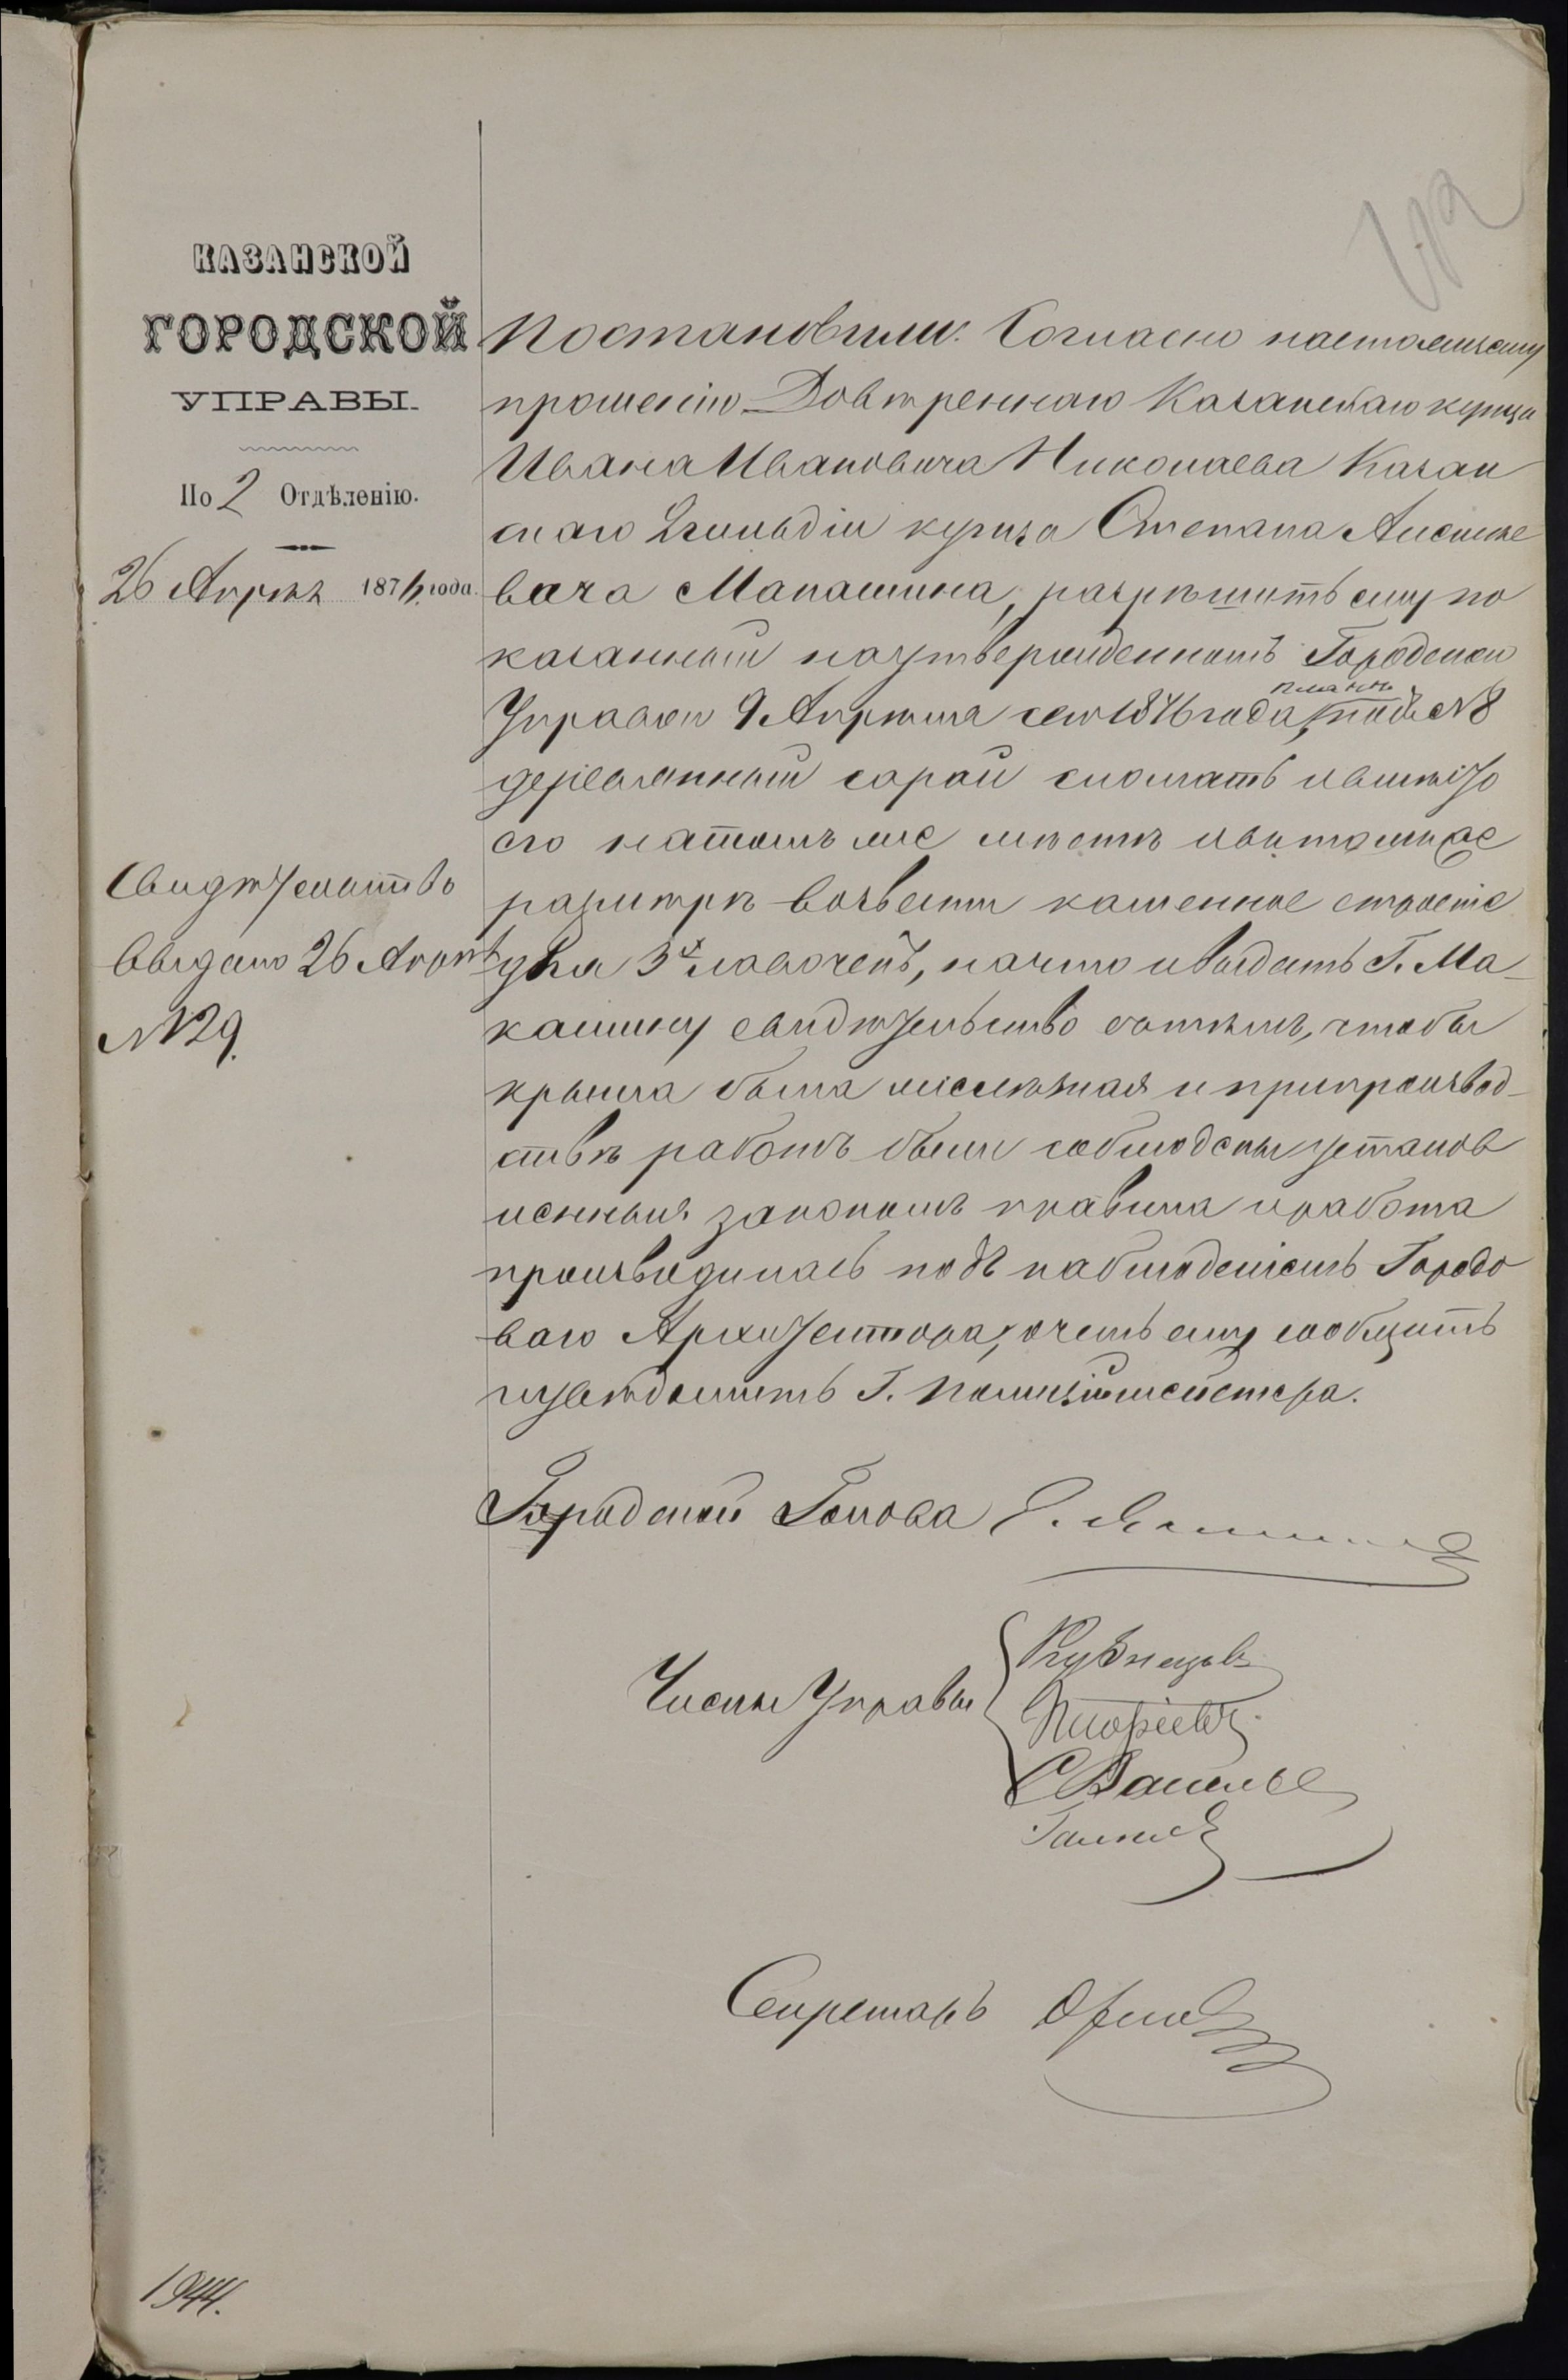 КАЗАНСКОЙ
ГОРОДСКОЙ
УПРАВЫ.
По 2 Отдѣленію.
26 Апрѣля 1876 года.
Свидѣтельство
Выдано 26 Апрѣл
№ 29.
Постановили: Согласно настоящему
прошенію Довѣреннаго Казанскаго купца
Ивана Ивановича Николаева Казан
скаго 2 гильдіи купца Степана Алексѣе
вича Макашина, разрѣшить ему по
казанный на утвержденномъ Городской
Управой 9 Апрѣля сего 1876 года, планѣ подъ № 8
деревянный сарай сломать и вмѣсто
его на томъ же мѣстѣ и въ томъ же
размѣрѣ возвести каменное строеніе
для 3х лавочекъ, на что и выдать Г. Ма-
кашину свидѣтельство съ тѣмъ, чтобы
крыша была желѣзная и при производ-
ствѣ работъ были соблюдены установ
ленныя закономъ правила и работа
производилась подъ наблюденіемъ Городо
ваго Архитектора, о чемъ ему сообщить
и увѣдомить Г. Полиціймейстера.
Городской Голова
Члены Управы
Кузнецовъ
С Васильев
Секретарь Орлов
1944.